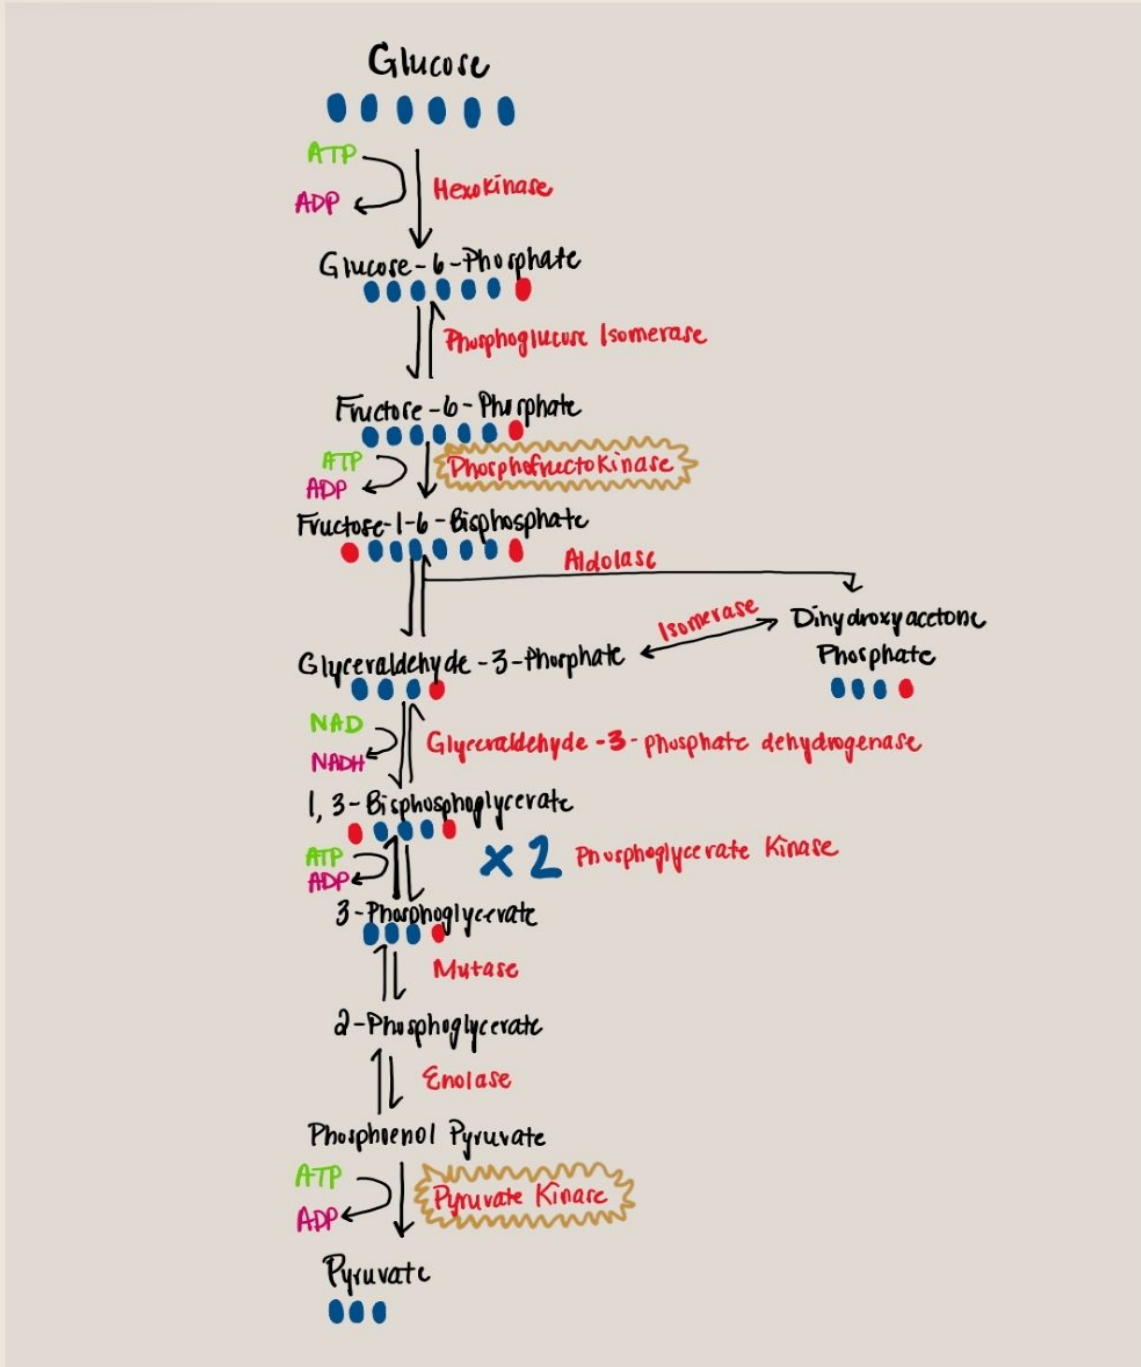 Glucose
ATP
ADP
Hexokinase
Glucose-6-Phosphate
Phosphoglucose Isomerase
Fructose-6-Phosphate
ATP
ADP
Phosphofructokinase
Fructose-1-6-Bisphosphate
Aldolase
Isomerase
Dihydroxyacetone
Phosphate
Glyceraldehyde-3-Phosphate
NAD
NADH
Glyceraldehyde-3-phosphate dehydrogenase
1,3-Bisphosphoglycerate
ATP
ADP
x 2
Phosphoglycerate Kinase
3-Phosphoglycerate
Mutase
2-Phosphoglycerate
Enolase
Phosphoenol Pyruvate
ATP
ADP
Pyruvate Kinase
Pyruvate